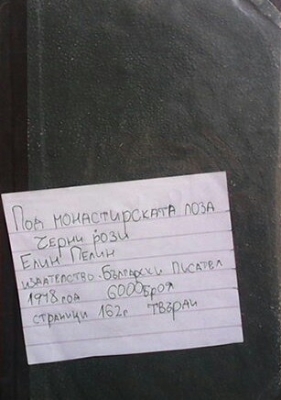 Под монастирската лоза
Черни рози
Елин Пелин
издателство. Български Писател
1978 год 6000 броя
страници 162г твърди